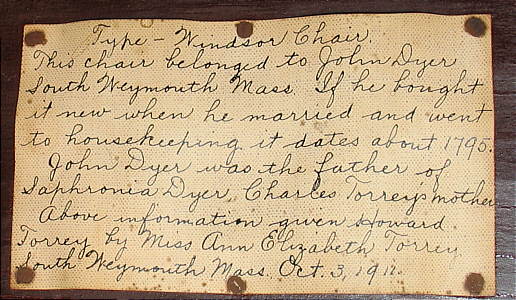 Type – Windsor Chair.
This chair belonged to John Dyer
South Weymouth Mass. If he bought
it new when he married and went
to housekeeping it dates about 1795.
John Dyer was the father of
Saphronia Dyer, Charles Torrey's mother
Above information given Howard
Torrey by Miss Ann Elizabeth Torrey
South Weymouth Mass. Oct. 3, 1911.